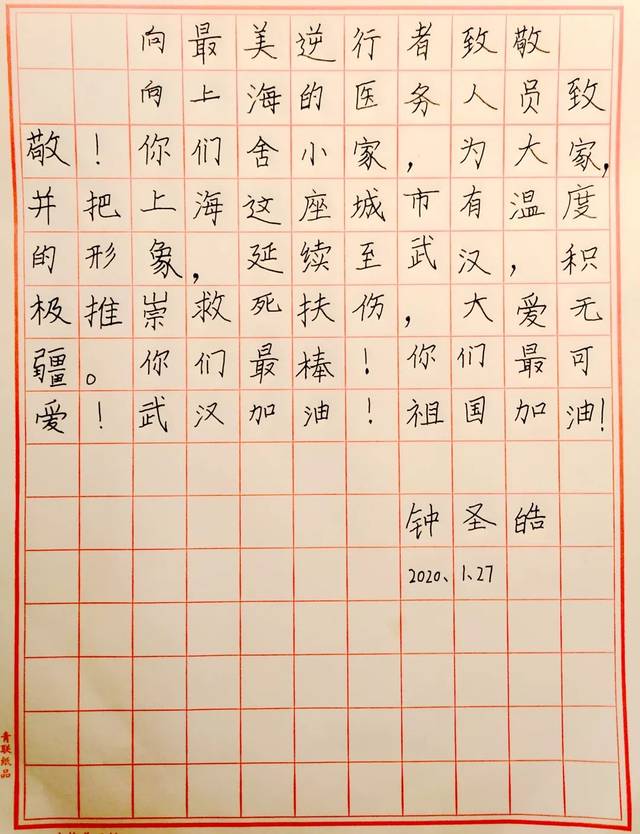 向最美逆行者致敬
向上海的医务人员致
敬！你们舍小家，为大家，
并把上海这座城市有温度
的形象，延续至武汉，积
极推崇救死扶伤，大爱无
疆。你们最棒！你们最可
爱！武汉加油！祖国加油！
钟圣皓
2020、1.27
青联纸品